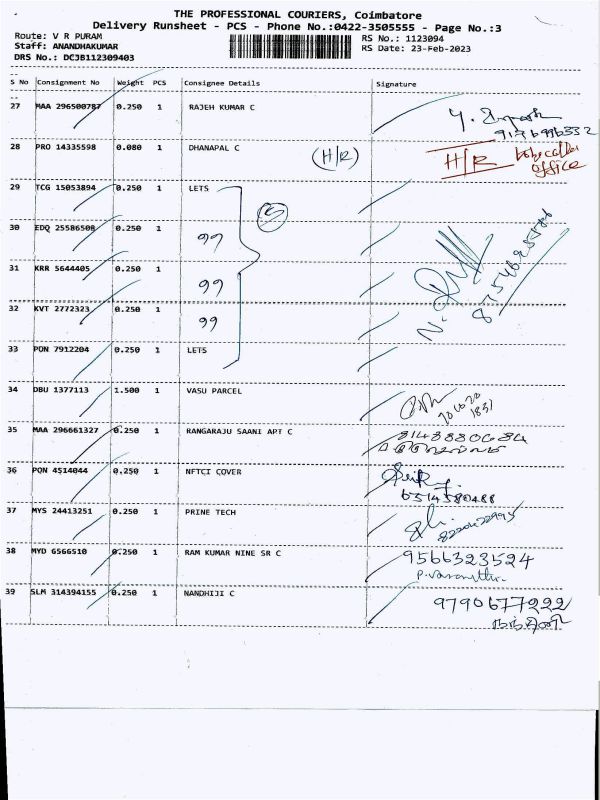 THE PROFESSIONAL COURIERS, Coimbatore
Delivery Runsheet - PCS - Phone No.:0422-3505555 - Page No.:3
Route: V R PURAM
Staff: ANANDHAKUMAR
DRS No.: DCJB112309403
RS No.: 1123094
RS Date: 23-Feb-2023
S No Consignment No Weight PCS Consignee Details Signature
27 MAA 296500787 0.250 1 RAJEH KUMAR C
28 PRO 14335598 0.080 1 DHANAPAL C (H/R) H/R office
29 TCG 15053894 0.250 1 LETS
30 EDQ 25586508 0.250 1 99
31 KRR 5644405 0.250 1 99
32 KVT 2772323 0.250 1 99
33 PON 7912204 0.250 1 LETS
34 DBU 1377113 1.500 1 VASU PARCEL
35 MAA 296661327 0.250 1 RANGARAJU SAANI APT C 8143880684
36 PON 4514044 0.250 1 NFTCI COVER
6514580488
37 MYS 24413251 0.250 1 PRINE TECH
38 MYD 6566510 0.250 1 RAM KUMAR NINE SR C 9566323524
39 SLM 314394155 0.250 1 NANDHIJI C 9790677222